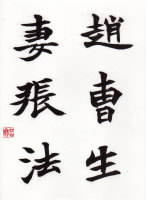 趙曹生
妻張法